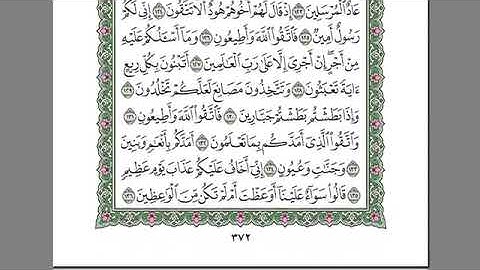 عَادٌ ٱلْمُرْسَلِينَ ١٢٣ إِذْ قَالَ لَهُمْ أَخُوهُمْ هُودٌ أَلَا تَتَّقُونَ ١٢٤ إِنِّي لَكُمْ
رَسُولٌ أَمِينٌ ١٢٥ فَٱتَّقُوا۟ ٱللَّهَ وَأَطِيعُونِ ١٢٦ وَمَآ أَسْـَٔلُكُمْ عَلَيْهِ
مِنْ أَجْرٍ إِنْ أَجْرِيَ إِلَّا عَلَىٰ رَبِّ ٱلْعَـٰلَمِينَ ١٢٧ أَتَبْنُونَ بِكُلِّ رِيعٍ
ءَايَةً تَعْبَثُونَ ١٢٨ وَتَتَّخِذُونَ مَصَانِعَ لَعَلَّكُمْ تَخْلُدُونَ ١٢٩
وَإِذَا بَطَشْتُم بَطَشْتُمْ جَبَّارِينَ ١٣٠ فَٱتَّقُوا۟ ٱللَّهَ وَأَطِيعُونِ ١٣١
وَٱتَّقُوا۟ ٱلَّذِىٓ أَمَدَّكُم بِمَا تَعْلَمُونَ ١٣٢ أَمَدَّكُم بِأَنْعَـٰمٍ وَبَنِينَ
١٣٣ وَجَنَّـٰتٍ وَعُيُونٍ ١٣٤ إِنِّىٓ أَخَافُ عَلَيْكُمْ عَذَابَ يَوْمٍ عَظِيمٍ
١٣٥ قَالُوا۟ سَوَآءٌ عَلَيْنَآ أَوَعَظْتَ أَمْ لَمْ تَكُن مِّنَ ٱلْوَٰعِظِينَ ١٣٦
٣٧٢